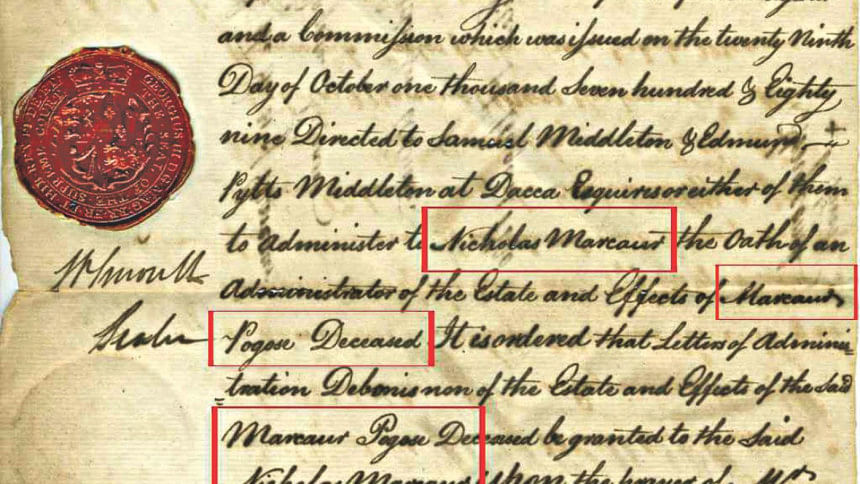 and a Commission which was issued on the twenty Ninth
Day of October one thousand Seven hundred & Eighty
nine Directed to Samuel Middleton & Edmund
Pytts Middleton at Dacca Esquires or either of them
to Administer to Nicholas Marcaur the Oath of an
Administrator of the Estate and Effects of Marcaur
Pogose Deceased It is ordered that Letters of Adminis=
=tration Debonis non of the Estate and Effects of the Said
Marcaur Pogose Deceased be granted to the Said
Nicholas Marcaur upon the prayer of Mr
GEORGIUS III
THE SEAL OF THE SUPREME COURT
Sealer